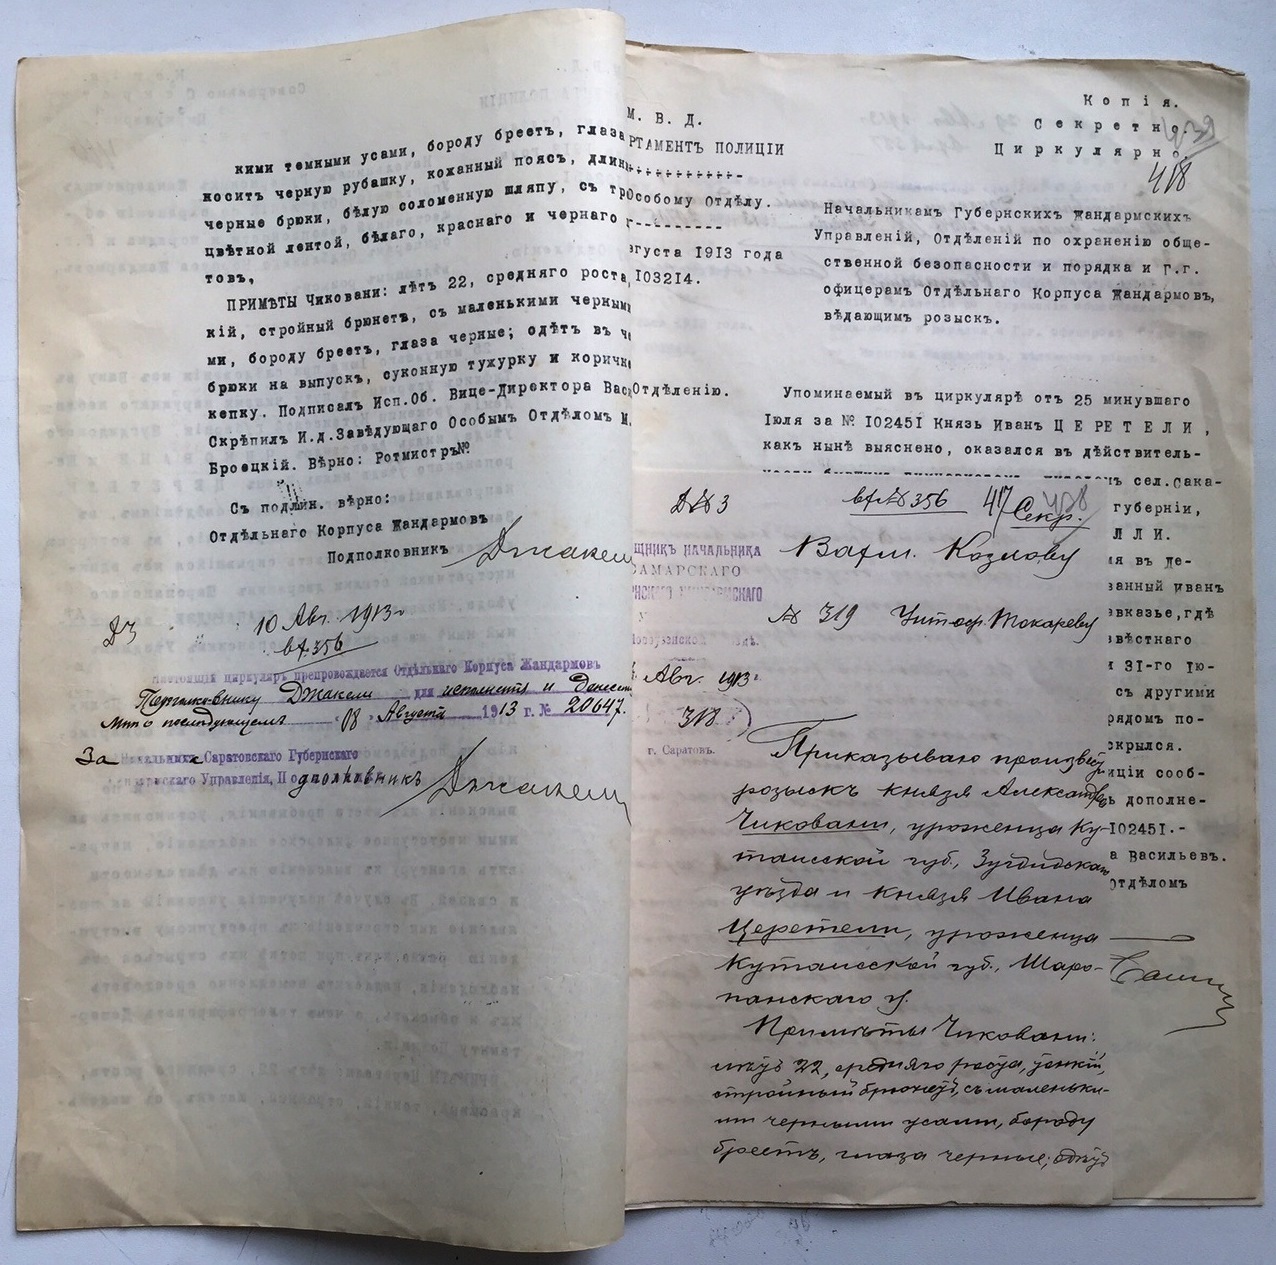 кими темными усами, бороду бреетъ, глаза
носитъ черную рубашку, кожанный поясъ, длин
черные брюки, бѣлую соломенную шляпу, съ тр
цвѣтной лентой, бѣлаго, краснаго и чернаго
товъ,
ПРИМѢТЫ Чиковани: лѣтъ 22, средняго роста,
кій, стройный брюнетъ, съ маленькими черными
ми, бороду бреетъ, глаза черные; одѣтъ въ че
брюки на выпускъ, суконную тужурку и коричне
кепку. Подписалъ Исп.Об. Вице-Директора Вас
Скрѣпилъ И.д.Завѣдующаго Особымъ Отдѣломъ М.
Броецкій. Вѣрно: Ротмистръ№
Съ подлин. вѣрно:
Отдѣльнаго Корпуса Жандармовъ
Подполковникъ Джакели
ДЗ
10 Авг. 1913 г
вх.356
Настоящій циркуляръ препровождается Отдѣльнаго Корпуса Жандармовъ
Подполковнику Джакели для исполненія и донесен
мнѣ о послѣдующемъ "08" Августа 1913 г. № 20647.
За Начальника Саратовскаго Губернскаго
Жандармскаго Управленія, Подполковникъ Джакели
М. В. Д.
РТАМЕНТЪ ПОЛИЦІИ
Особому Отдѣлу.
вгуста 1913 года
103214.
Отдѣленію.
Копія.
Секретно.
Циркулярно.
418
Начальникамъ Губернскихъ Жандармскихъ
Управленій, Отдѣленій по охраненію обще-
ственной безопасности и порядка и Г.г.
офицерамъ Отдѣльнаго Корпуса Жандармовъ,
вѣдающимъ розыскъ.
Упоминаемый въ циркулярѣ отъ 25 минувшаго
Іюля за № 102451 Князь Иванъ ЦЕРЕТЕЛИ,
какъ нынѣ выяснено, оказался въ дѣйствитель-
сел.Сака-
губерніи,
ЛЛИ.
я въ Де-
ванный Иванъ
вказье,гдѣ
звѣстнаго
31-го Ію-
съ другими
рядомъ по-
скрылся.
иціи сооб-
ь дополне-
102451.-
а Васильевъ.
Отдѣломъ
Д№3
вх№356
417
Секр.
ЩНИКЪ НАЧАЛЬНИКА
САМАРСКАГО
РНСКАГО ЖАНДАРМСКАГО
Авг. 1913
318
г. Саратовъ.
Вахм. Козлову
№ 319 Унтоф. Токареву
Приказываю произвест
розыскъ князя Александр
Чиковани, уроженца Ку-
таисской губ., Зугдидскаго
уѣзда и князя Ивана
Церетели, уроженца
Кутаисской губ., Шаро-
панскаго у.
Примѣты Чиковани:
лѣтъ 22, средняго роста, тонкій,
стройный брюнетъ, съ маленьки-
ми черными усами, бороду
бреетъ, глаза черные; одѣтъ